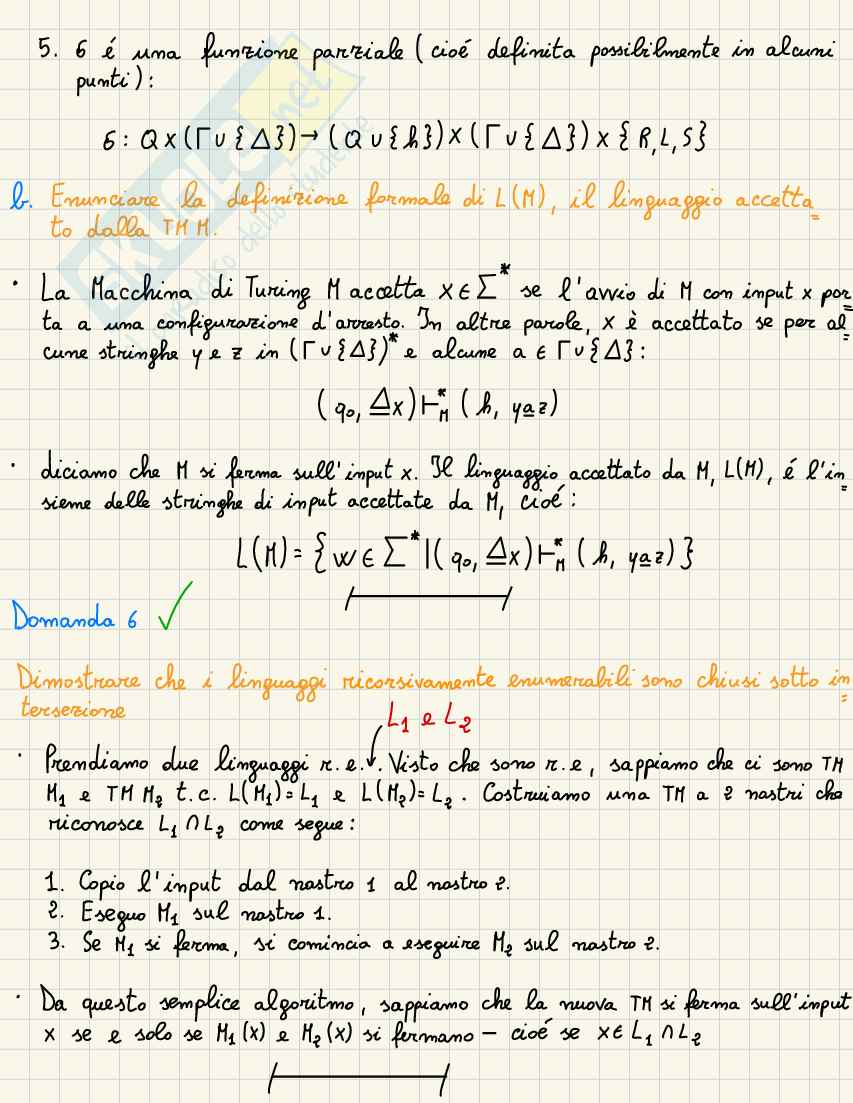 5. δ é una funzione parziale (cioé definita possibilmente in alcuni
punti):
δ: Q×(Γ∪{Δ})→(Q∪{h})×(Γ∪{Δ})×{R,L,S}
b. Enunciare la definizione formale di L(M), il linguaggio accetta
to dalla TM M.
· La Macchina di Turing M accetta x∈Σ* se l'avvio di M con input x por
ta a una configurazione d'arresto. In altre parole, x è accettato se per al
cune stringhe y e z in (Γ∪{Δ})* e alcune a ∈ Γ∪{Δ}:
(q₀, Δ̲x)⊢*ₘ(h, ya̲z)
· diciamo che M si ferma sull'input x. Il linguaggio accettato da M, L(M), é l'in
sieme delle stringhe di input accettate da M, cioé:
L(M)={w∈Σ*|(q₀, Δ̲x)⊢*ₘ(h, ya̲z)}
Domanda 6 ✓
Dimostrare che i linguaggi ricorsivamente enumerabili sono chiusi sotto in
tersezione
L₁ e L₂
· Prendiamo due linguaggi r.e.. Visto che sono r.e, sappiamo che ci sono TM
M₁ e TM M₂ t.c. L(M₁)=L₁ e L(M₂)=L₂. Costruiamo una TM a 2 nastri che
riconosce L₁∩L₂ come segue:
1. Copio l'input dal nastro 1 al nastro 2.
2. Eseguo M₁ sul nastro 1.
3. Se M₁ si ferma, si comincia a eseguire M₂ sul nastro 2.
· Da questo semplice algoritmo, sappiamo che la nuova TM si ferma sull'input
x se e solo se M₁(x) e M₂(x) si fermano – cioé se x∈L₁∩L₂